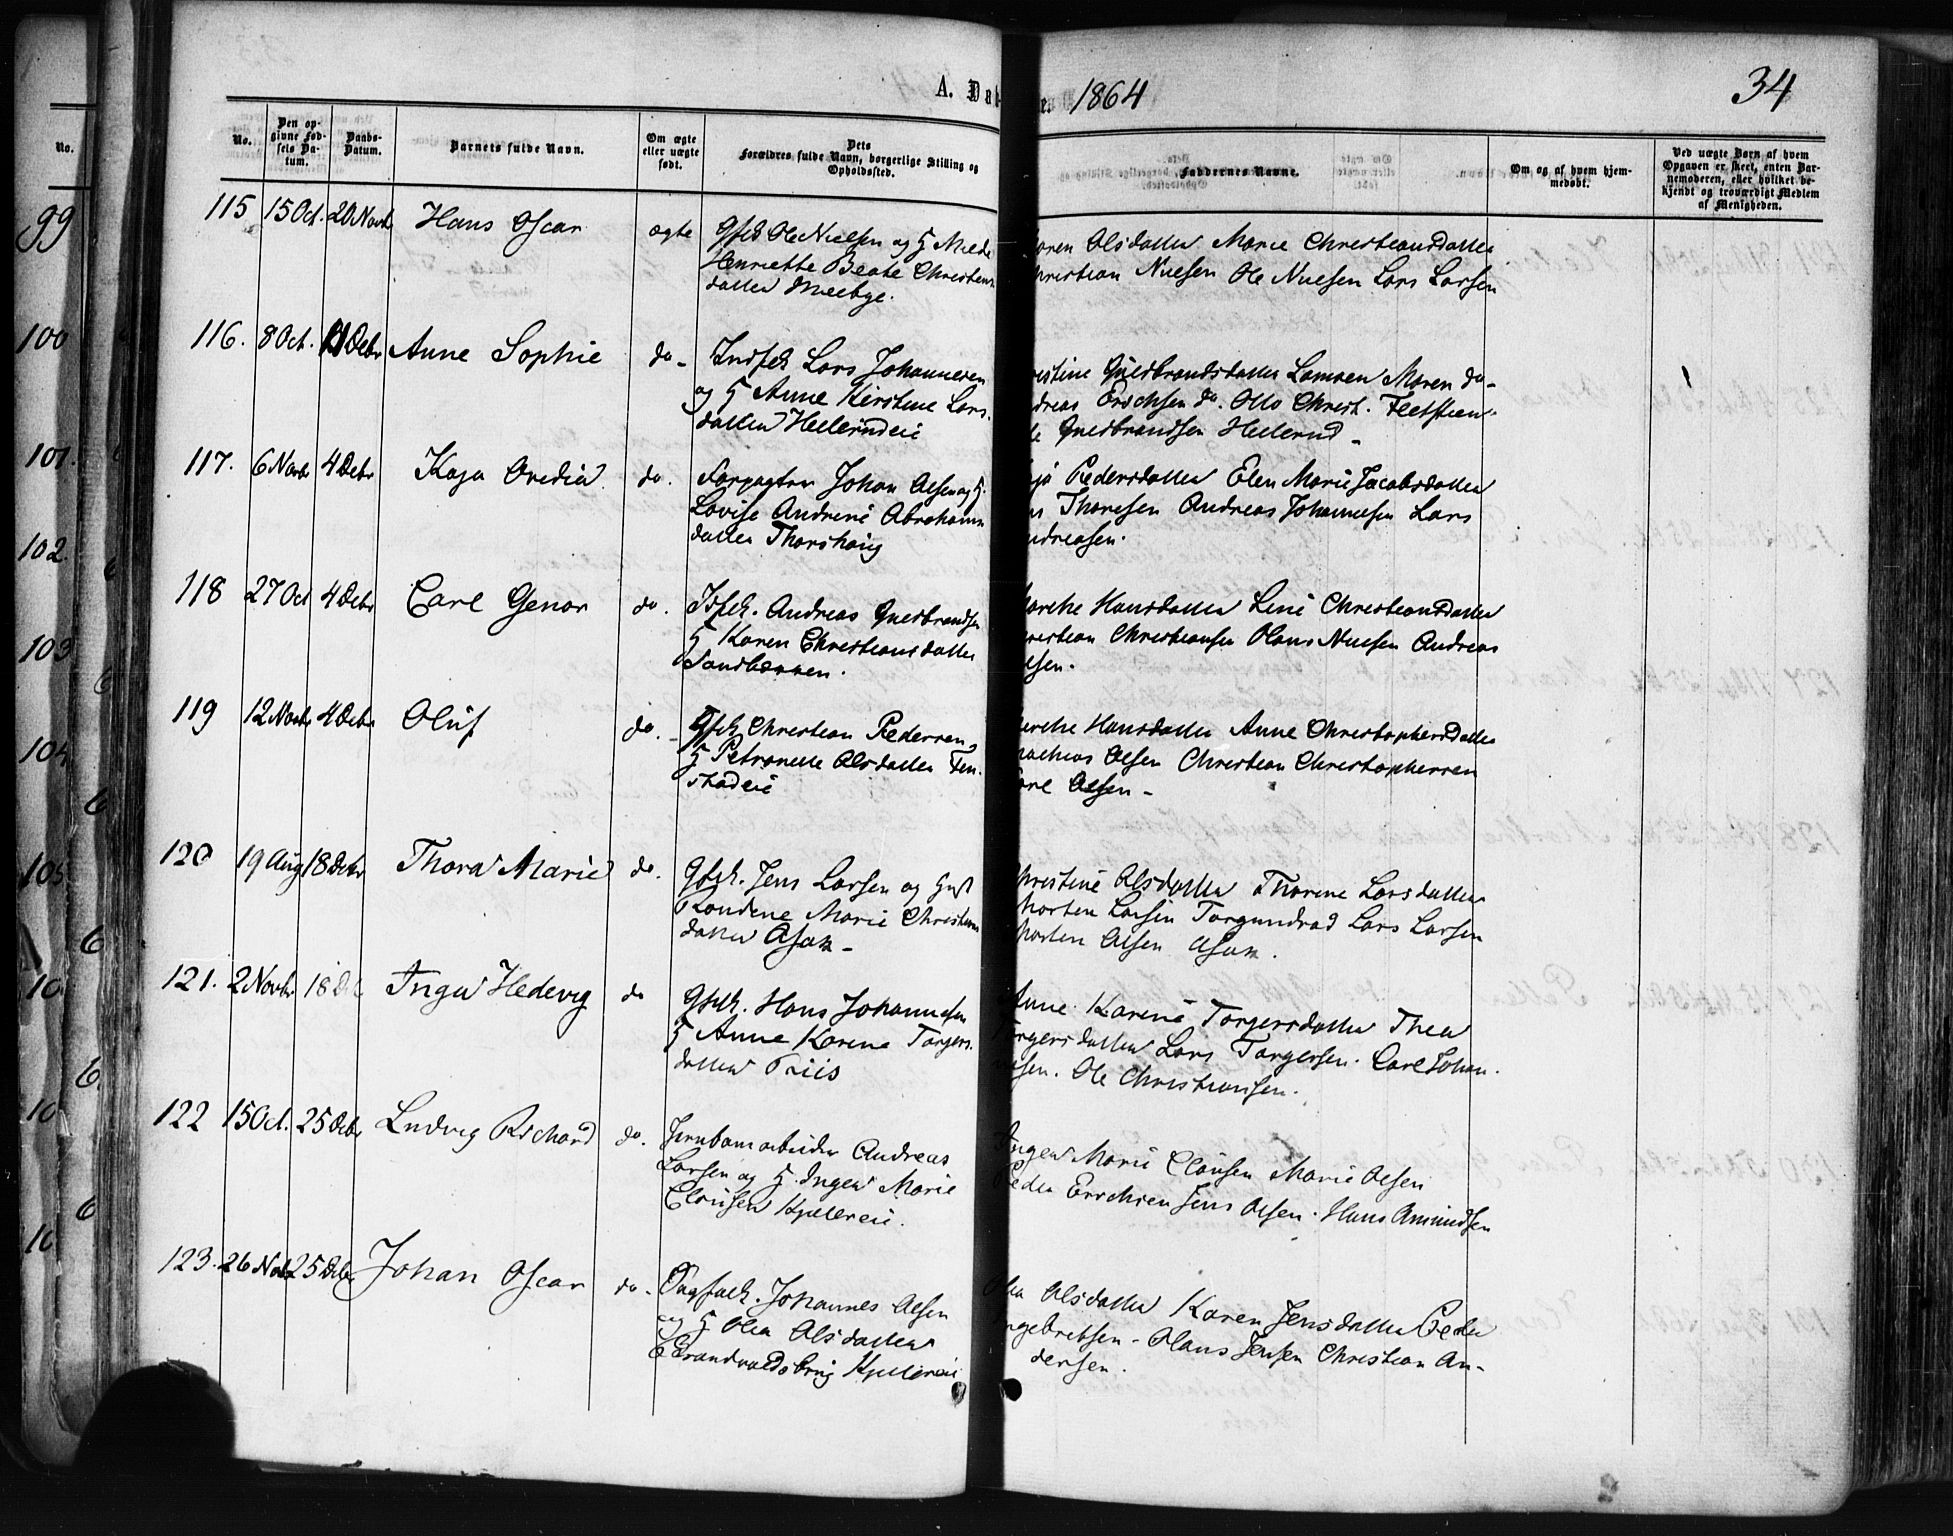 A. Døb
e. 1864
34
No.
Den opgivne Fødsels Datum.
Daabs-Datum.
Barnets fulde Navn.
Om ægte eller uægte født.
Dets Forældres fulde Navn, borgerlige Stilling og Opholdssted.
Faddernes Navne.
Om og af hvem hjemmedøbt.
Ved uægte Børn af hvem Opgaven er skeet, enten Barnemoderen, eller hvilket bekjendt og troværdigt Medlem af Menigheden.
No.
99
100
101.
102.
103
104
105
115 15 Oct. 20 Novbr Hans Oscar ægte
Gfck Ole Nielsen og H
Henriette Beate Christians
datter Meebye.
Maren Olsdatter Marie Christiansdatter
Christian Nielsen Ole Nielsen Lars Larsen
116. 8 Oct. 11 Debr Anne Sophie do-
Indfck Lars Johannesen
og H Anne Kirstine Lars-
datter Hellerudeie
ristine Guldbrandsdatter Lamoen Maren do-
dreas Erichsen do. Otto Christ.
le Guldbrandsen Hellerud -
117. 6 Novbr 4 Debr Kaja Ovedia do.
Forpagter Johan Olsen og H.
Lovise Andrine Abraham
datter Thorshoug
aja Pedersdatter Elen Marie Jacobsdatter
Thoresen Andreas Johannesen Lars
ndreasen.
118 27 Oct 4 Debr Carl Genor do.
Idfck. Andreas Guldbrandsen
H Karen Christiansdatter
Sandbakken.
Marthe Hansdatter Line Christiansdatter
hristian Christiansen Olaus Nielsen Andreas
lsen.
119 12 Novbr 4 Debr Oluf do. -
Gfck Christian Pedersen
H Petronelle Olsdatter Fen-
stadeie
arthe Hansdatter Anne Christophersdatter
athias Olsen Christian Christophersen
arl Olsen -
120 19 Aug 18 Debr Thora Marie do.
Gfck. Jens Larsen og Hust
Randine Marie Christians
datter Asak -
hristine Olsdatter Thorine Larsdatter
Morten Larsen Torgundrud Lars Larsen
Morten Olsen Asak.
121. 2 Novbr 18 De Inga Hedevig do
Gfck. Hans Johannesen
H Anne Karine Torgers-
datter Riis
Anne Karine Torgersdatter Thea
Torgersdatter Lars Torgersen. Carl Johan-
nesen. Ole Christiansen.
122 15 Oct. 25 Debr Ludvig Richard do.
Jernbanearbeider Andreas
Larsen og H. Inger Marie
Clausen Kjellereie.
Inger Marie Clausen Marie Olsen
Peder Erichsen Jens Olsen. Hans Amundsen
123. 26 Nov 25 Debr Johan Oscar do.
Johannes Olsen
og H Olea Olsdatter
Strandvoldsbrug Kjellereie
Olea Olsdatter Karen Jensdatter Peder
ngebretsen - Olaus Jensen Christian An-
dersen.